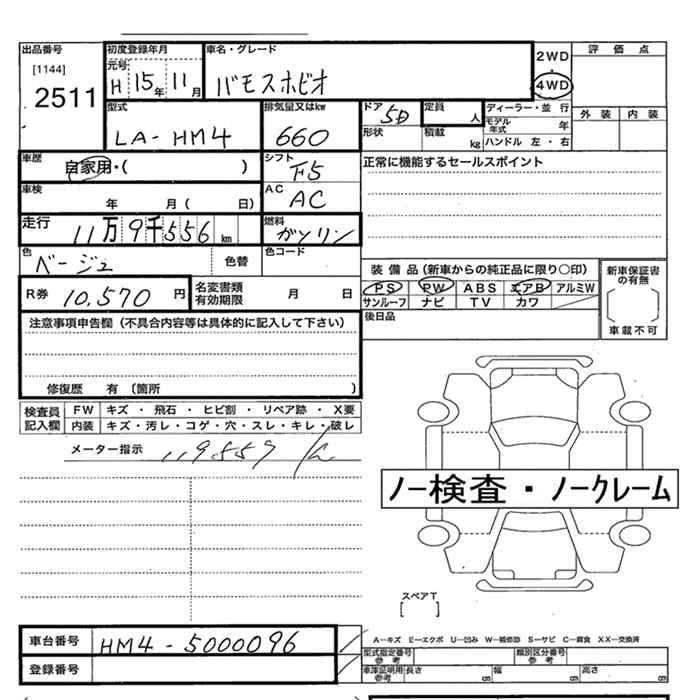 出品番号 初度登録年月 車名・グレード 2WD ・ 4WD 評価点
[1144] 元号
2511 H 15年 11月 バモスホビオ
型式 排気量又はkw ドア 定員 ディーラー・並行 外装 内装
LA-HM4 660 5D 人 モデル年式 年
形状 積載 kg ハンドル 左・右
車歴 自家用・( ) シフト F5 正常に機能するセールスポイント
車検 年 月( 日) AC AC
走行 11万9千556km 燃料 ガソリン
色 ベージュ 色替 色コード
装備品(新車からの純正品に限り○印) 新車保証書の有無
R券 10,570円 名変書類有効期限 月 日 PS PW ABS エアB アルミW
サンルーフ ナビ TV カワ
車載不可
注意事項申告欄(不具合内容等は具体的に記入して下さい) 後日品
修復歴 有 (箇所 )
検査員記入欄 FW キズ・飛石・ヒビ割・リペア跡・X要
内装 キズ・汚レ・コゲ・穴・スレ・キレ・破レ
メーター指示 119,557
ノー検査・ノークレーム
スペアT
[ ]
車台番号 HM4-5000096
A—キズ E—エクボ U—凹み W—補修跡 S—サビ C—腐食 XX—交換済
型式指定番号 参考 類別区分番号 参考
登録番号 車庫証明用 参考 長さ cm 幅 cm 高さ cm